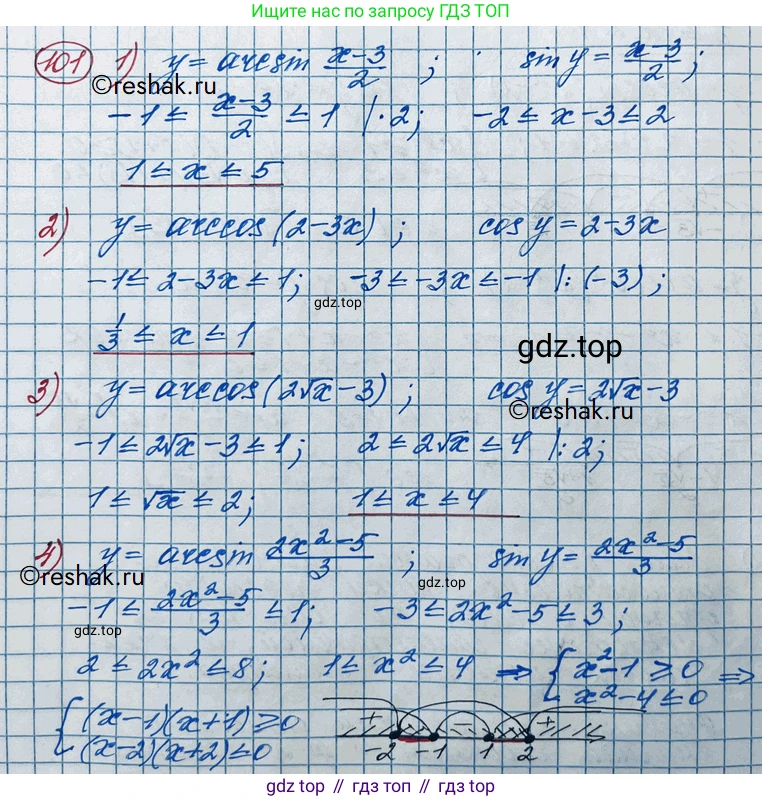 Ищите нас по запросу ГДЗ ТОП
101 1) y = arcsin (x-3)/2 ; sin y = (x-3)/2 ;
©reshak.ru
-1 ≤ (x-3)/2 ≤ 1 |·2; -2 ≤ x-3 ≤ 2
1 ≤ x ≤ 5
2) y = arccos(2-3x) ; cos y = 2-3x
-1 ≤ 2-3x ≤ 1; -3 ≤ -3x ≤ -1 |:(-3) ;
gdz.top
1/3 ≤ x ≤ 1
gdz.top
3) y = arccos(2√x-3) ; cos y = 2√x-3
©reshak.ru
-1 ≤ 2√x-3 ≤ 1; 2 ≤ 2√x ≤ 4 |:2;
1 ≤ √x ≤ 2; 1 ≤ x ≤ 4
4) y = arcsin (2x²-5)/3 ; sin y = (2x²-5)/3
©reshak.ru
gdz.top
-1 ≤ (2x²-5)/3 ≤ 1; -3 ≤ 2x²-5 ≤ 3 ;
gdz.top
2 ≤ 2x² ≤ 8; 1 ≤ x² ≤ 4 ⇒ { x²-1 ≥ 0 ⇒
x²-4 ≤ 0
{ (x-1)(x+1) ≥ 0
(x-2)(x+2) ≤ 0
+ - +
-2 -1 1 2
gdz top // гдз топ // gdz.top // гдз топ